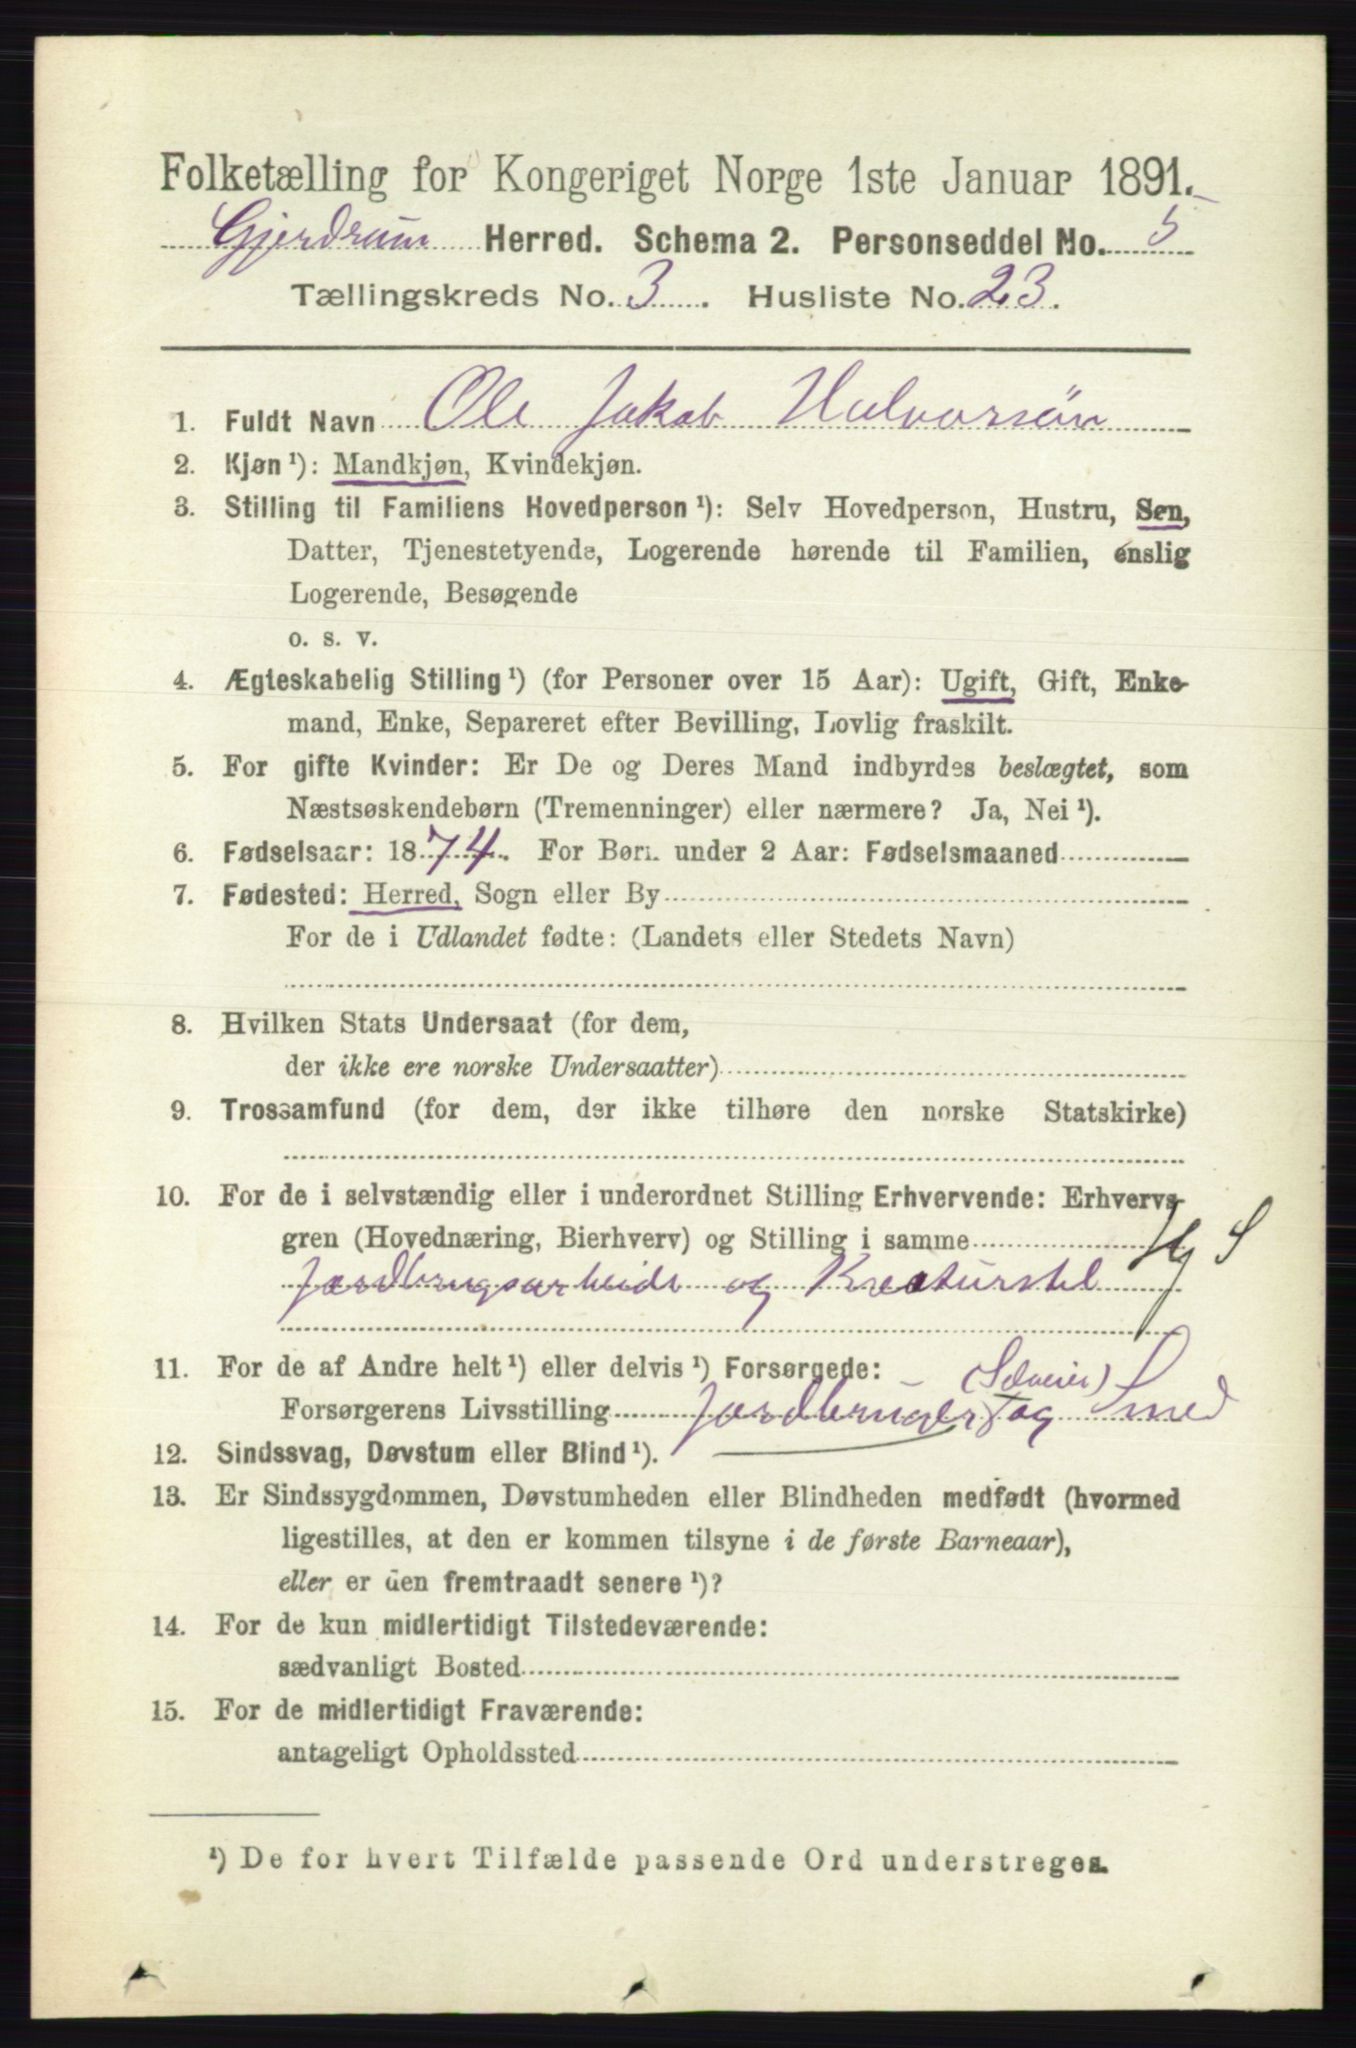 Folketælling for Kongeriget Norge 1ste Januar 1891.
Gjerdrum Herred. Schema 2. Personseddel No. 5
Tællingskreds No. 3. Husliste No. 23.
1. Fuldt Navn Ole Jakob Halvorsön
2. Kjøn ¹): Mandkjøn, Kvindekjøn.
3. Stilling til Familiens Hovedperson ¹): Selv Hovedperson, Hustru, Søn,
Datter, Tjenestetyende, Logerende hørende til Familien, enslig
Logerende, Besøgende
o. s. v.
4. Ægteskabelig Stilling ¹) (for Personer over 15 Aar): Ugift, Gift, Enke-
mand, Enke, Separeret efter Bevilling, Lovlig fraskilt.
5. For gifte Kvinder: Er De og Deres Mand indbyrdes beslægtet, som
Næstsøskendebørn (Tremenninger) eller nærmere? Ja, Nei ¹).
6. Fødselsaar: 1874. For Børn under 2 Aar: Fødselsmaaned
7. Fødested: Herred, Sogn eller By
For de i Udlandet fødte: (Landets eller Stedets Navn)
8. Hvilken Stats Undersaat (for dem,
der ikke ere norske Undersaatter)
9. Trossamfund (for dem, der ikke tilhøre den norske Statskirke)
10. For de i selvstændig eller i underordnet Stilling Erhvervende: Erhvervs-
gren (Hovednæring, Bierhverv) og Stilling i samme
Jordbrugsarbeide og Kreaturstel
11. For de af Andre helt ¹) eller delvis ¹) Forsørgede:
(Selveier)
Forsørgerens Livsstilling Jordbruger og Smed
12. Sindssvag, Døvstum eller Blind ¹).
13. Er Sindssygdommen, Døvstumheden eller Blindheden medfødt (hvormed
ligestilles, at den er kommen tilsyne i de første Barneaar),
eller er den fremtraadt senere ¹)?
14. For de kun midlertidigt Tilstedeværende:
sædvanligt Bosted
15. For de midlertidigt Fraværende:
antageligt Opholdssted
¹) De for hvert Tilfælde passende Ord understreges.